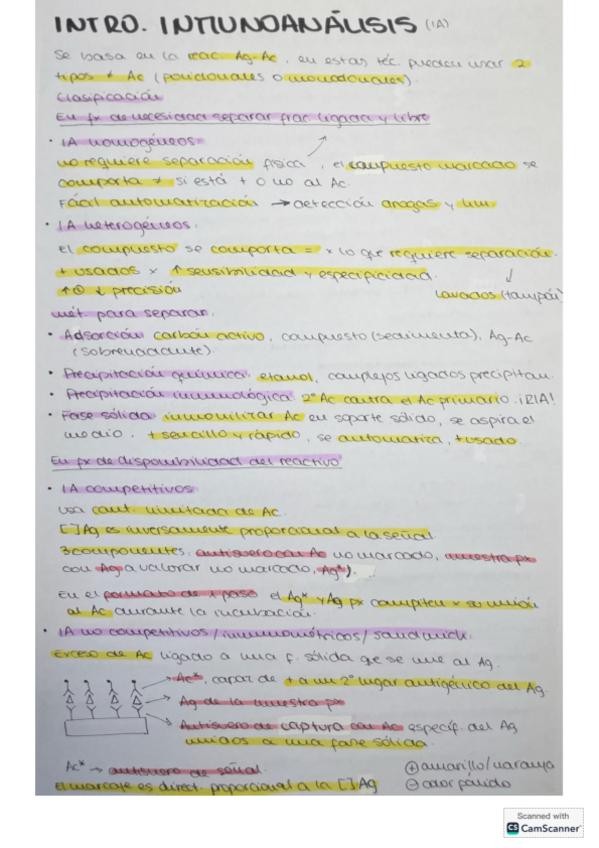 INTRO. INMUNOANÁLISIS (IA)
Se basa en la reac. Ag-Ac, en estas téc. pueden usar 2
tipos ≠ Ac (policlonales o monoclonales).
Clasificación
En fx de necesidad separar frac. ligada y libre
• IA homogéneos.
no requiere separación física, el compuesto marcado se
comporta ≠ si está + o no al Ac.
Fácil automatización → detección drogas y hm
• IA heterogéneos.
El compuesto se comporta = x lo que requiere separación.
+ usados x ↑ sensibilidad y especificidad.
↓ precisión
Lavados (tampón)
mét. para separar.
• Adsorción carbón activo, compuesto (sedimenta), Ag-Ac
(sobrenadante).
• Precipitación química: etanol, complejos ligados precipitan.
• Precipitación inmunológica 2º Ac contra el Ac primario. ¡RIA!
• Fase sólida inmovilizar Ac en soporte sólido, se aspira el
medio. + sencillo y rápido, se automatiza, + usado.
En fx de disponibilidad del reactivo
• IA competitivos
Usa cant. limitada de Ac.
[ ] Ag es inversamente proporcional a la señal.
3 componentes: antisuero con Ac no marcado, muestra px
con Ag a valorar no marcado, Ag*).
En el formato de 1 paso el Ag* y Ag px compiten x su unión
al Ac durante la incubación.
• IA no competitivos / inmunométricos / sandwich.
Exceso de Ac ligado a una f. sólida que se une al Ag.
Ac*, capaz de + a un 2º lugar antigénico del Ag.
Ag de la muestra px
Antisuero de captura con Ac específ. del Ag
unidos a una fase sólida.
Ac* → antisuero de señal.
⊕ amarillo/naranja
El marcaje es direct. proporcional a la [ ] Ag
⊖ color pálido
Scanned with
CS CamScanner